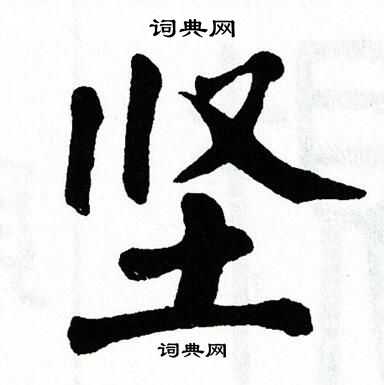 词典网
坚
词典网